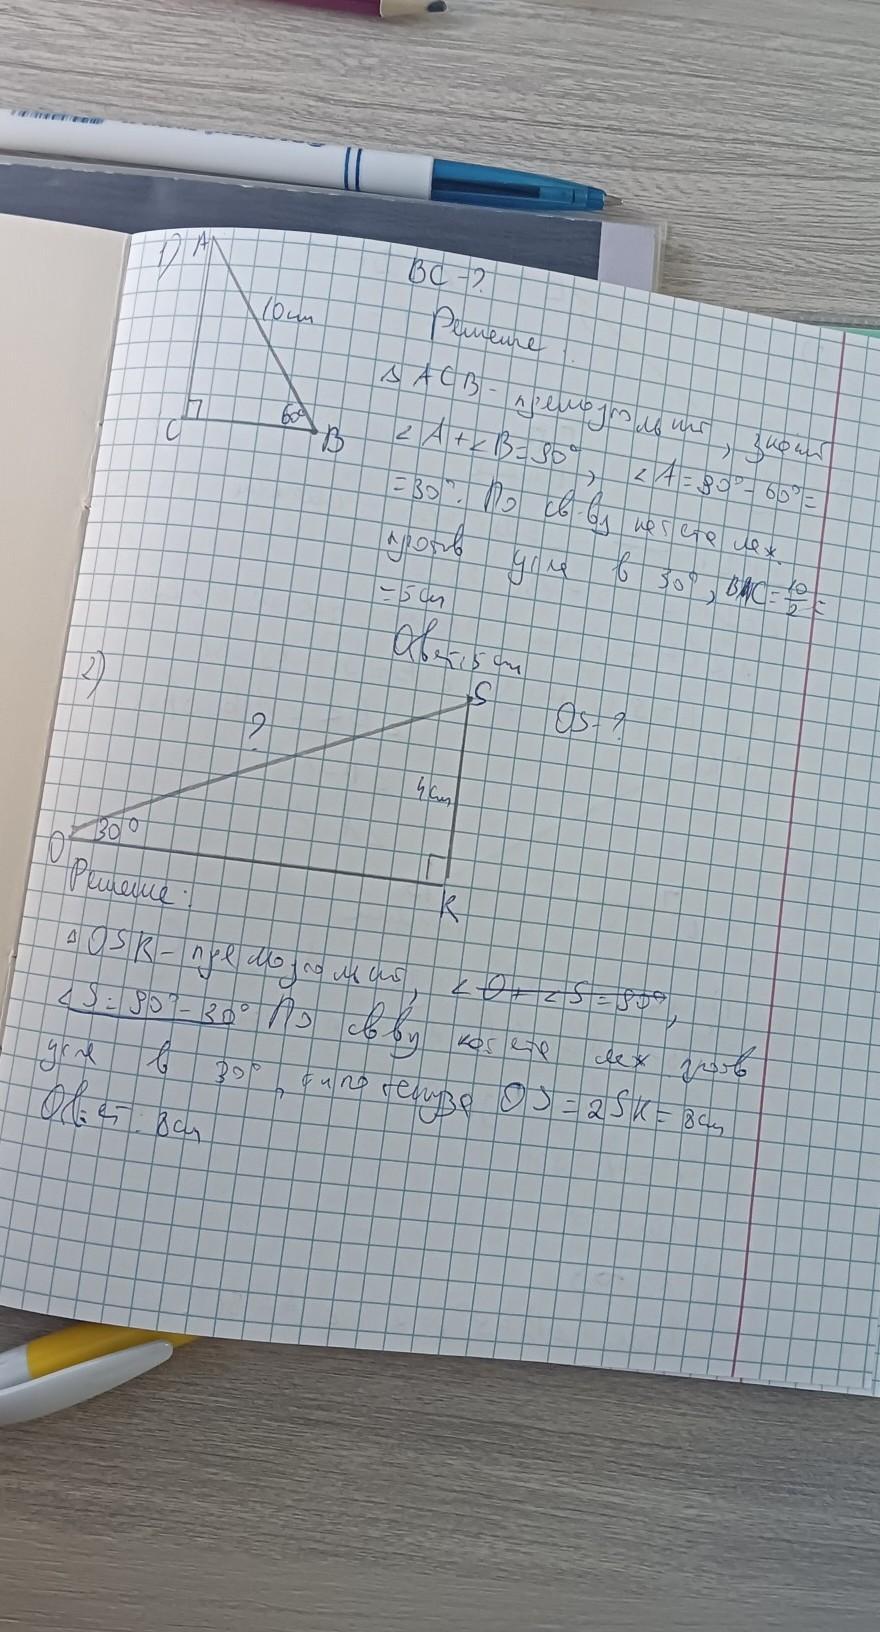 1)
A
10 см
60°
C
B
BC - ?
Решение
△ ACB - прямоугольный, значит
∠A + ∠B = 90°, ∠A = 90° - 60° =
= 30°. По св-ву катета леж.
против угла в 30°, BC = 10/2 =
= 5 см
Ответ: 5 см
2)
S
?
OS - ?
4 см
30°
O
K
Решение:
△ OSK - прямоугольный, ∠O + ∠S = 90°,
∠S = 90° - 30° По св ву катета леж против
угла в 30°, гипотенуза OS = 2SK = 8 см
Ответ: 8 см